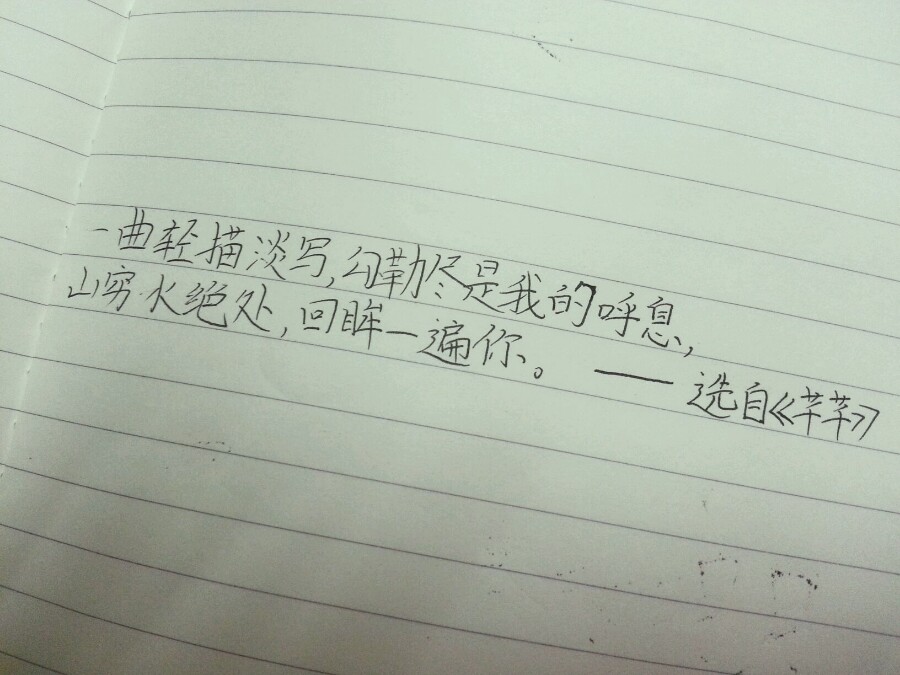 一曲轻描淡写,勾勒尽是我的呼息,
山穷水绝处,回眸一遍你。 —— 选自《芊芊》